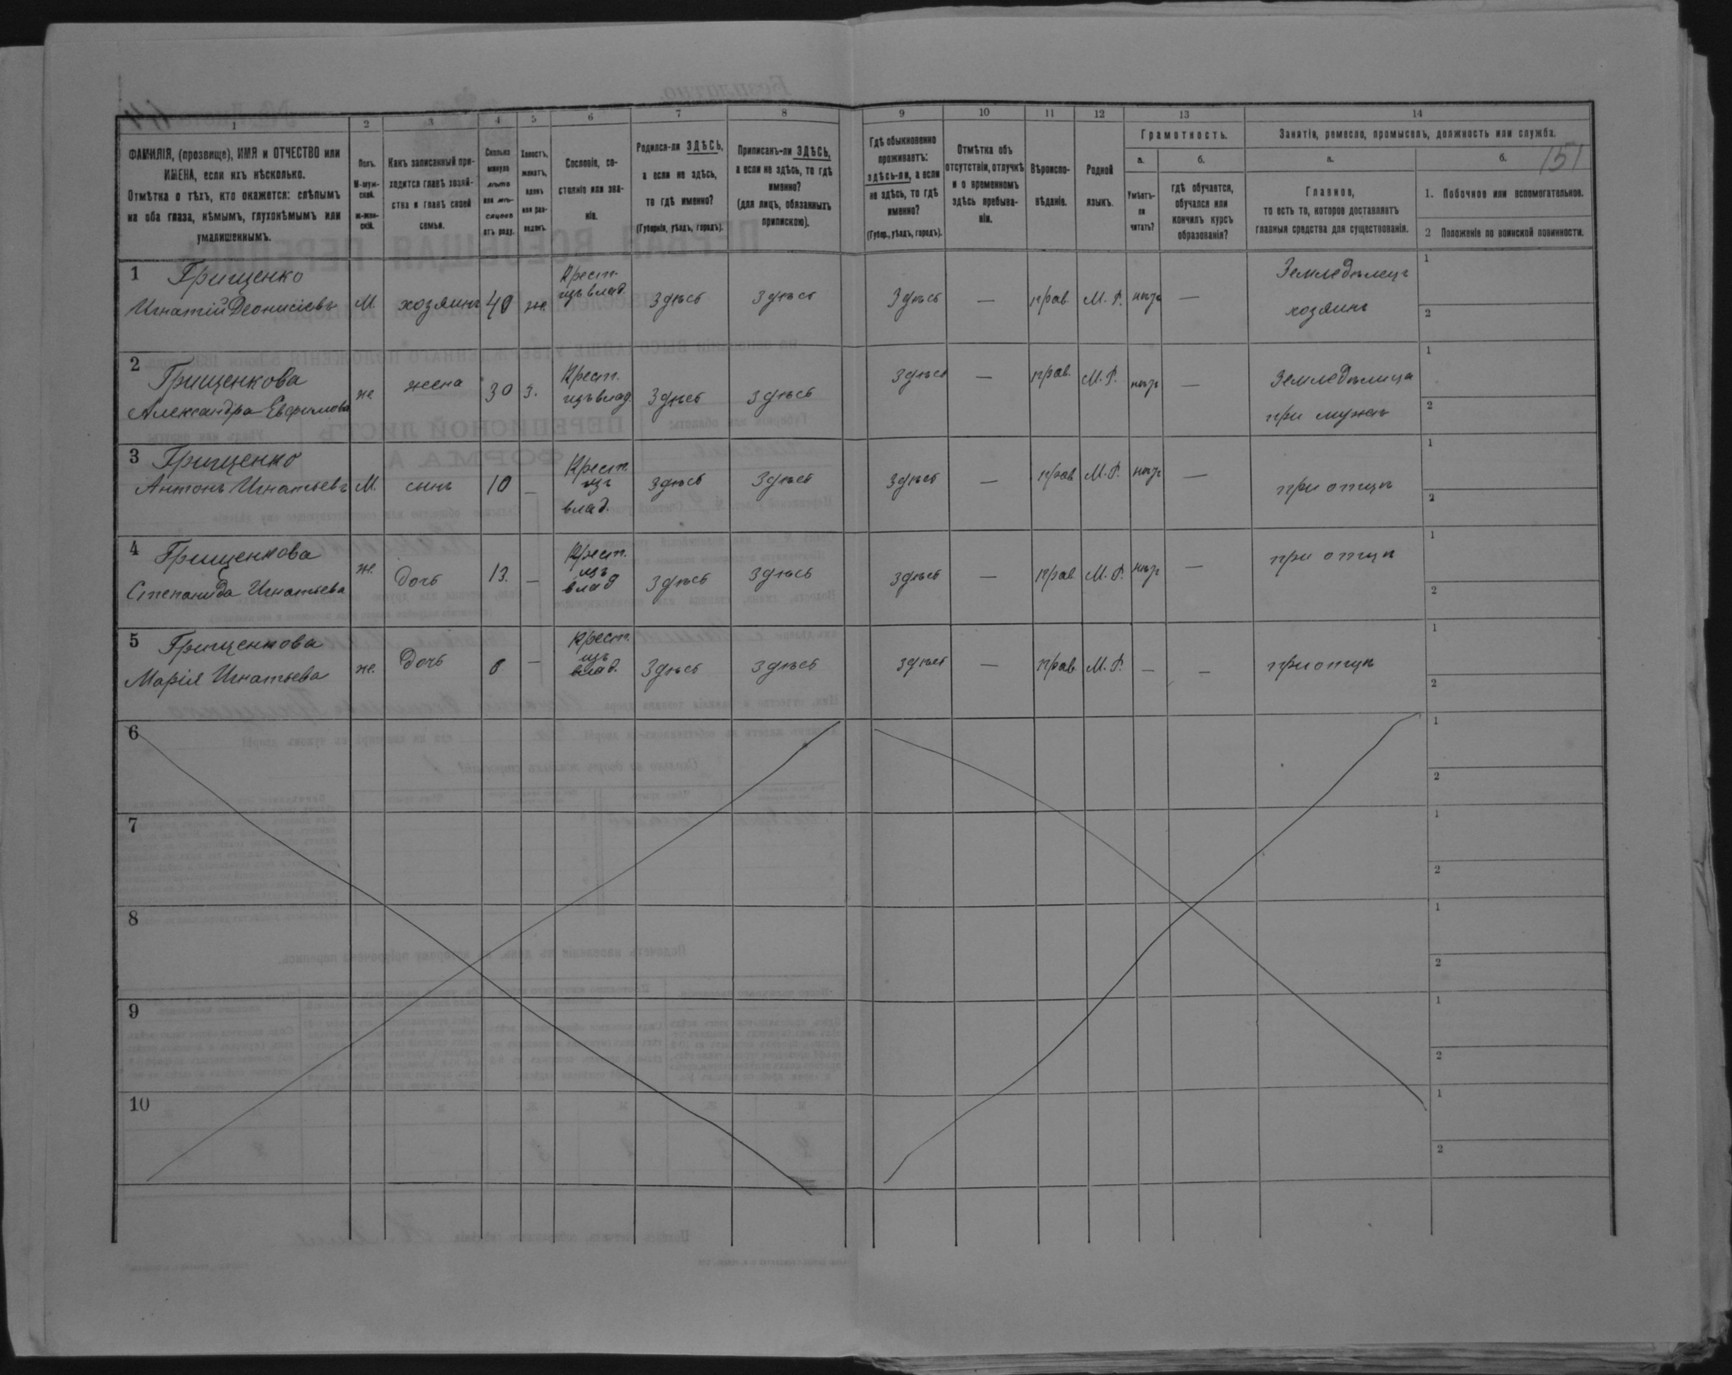 1
2
3
4
5
6
7
8
9
10
11
12
13
14
ФАМИЛІЯ, (прозвище), ИМЯ и ОТЧЕСТВО или
ИМЕНА, если ихъ нѣсколько.
Отмѣтка о тѣхъ, кто окажется: слѣпымъ
на оба глаза, нѣмымъ, глухонѣмымъ или
умалишеннымъ.
Полъ.
М-муж-
ской.
ж-жен-
скій.
Какъ записанный при-
ходится главѣ хозяй-
ства и главѣ своей
семьи.
Сколько
минуло
лѣтъ
или мѣ-
сяцевъ
отъ роду.
Холостъ,
женатъ,
вдовъ
или раз-
веденъ.
Сословіе, со-
стояніе или зва-
ніе.
Родился-ли ЗДѢСЬ,
а если не здѣсь,
то гдѣ именно?
(Губернія, уѣздъ, городъ).
Приписанъ-ли ЗДѢСЬ,
а если не здѣсь, то гдѣ
именно?
(для лицъ, обязанныхъ
припискою).
Гдѣ обыкновенно
проживаетъ:
здѣсь-ли, а если
не здѣсь, то гдѣ
именно?
(Губер., уѣздъ, городъ).
Отмѣтка объ
отсутствіи, отлучкѣ
и о временномъ
здѣсь пребыва-
ніи.
Вѣроиспо-
вѣданіе.
Родной
языкъ.
Грамотность.
а.
б.
Умѣетъ-
ли
читать?
гдѣ обучается,
обучался или
кончилъ курсъ
образованія?
Занятіе, ремесло, промыселъ, должность или служба.
а.
б.
151
Главное,
то есть то, которое доставляетъ
главныя средства для существованія.
1. Побочное или вспомогательное.
2 Положеніе по воинской повинности.
1 Грищенко
Игнатій Деонисіевъ М. хозяинъ 40 же. Крест. изъ влад. Здѣсь Здѣсь Здѣсь — прав М. Р. нѣтъ — Земледѣлецъ хозяинъ 1 2
2 Грищенкова
Александра Евфимова же жена 30 з. Крест. изъ влад Здѣсь Здѣсь Здѣсь — прав. М. Р. нѣтъ — Земледѣлица при мужѣ 1 2
3 Грищенко
Антонъ Игнатьевъ М. сынъ 10 — Крест. изъ влад. Здѣсь Здѣсь Здѣсь — прав М. Р. нѣтъ — при отцѣ 1 2
4 Грищенкова
Степанида Игнатьева же. Дочь 13. — Крест. изъ влад Здѣсь Здѣсь Здѣсь — прав М. Р. нѣтъ — при отцѣ 1 2
5 Грищенкова
Марія Игнатьева же. Дочь — Крест. изъ влад. Здѣсь Здѣсь Здѣсь — прав М. Р. — — при отцѣ 1 2
6 1 2
7 1 2
8 1 2
9 1 2
10 1 2